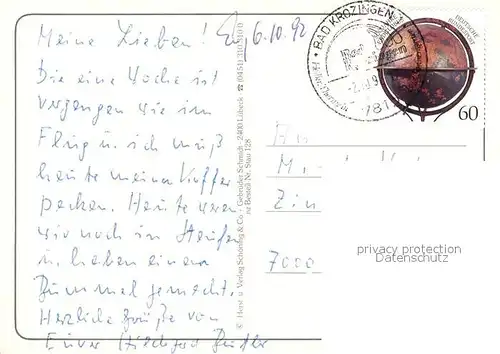 Meine Lieben! 6.10.92
Die eine Woche ist
vergangen wie im
Flug u. ich muß
heute meinen Koffer
packen. Heute waren
wir noch in Staufen
u. haben einen
Bummel gemacht.
Herzliche Grüße von
Eurer Hildegard
© Horst u. Verlag Schöning & Co · Gebrüder Schmidt · 2400 Lübeck
BAD KROZINGEN 1
781
DEUTSCHE
BUNDESPOST
60
Zin
7000
privacy protection
Datenschutz